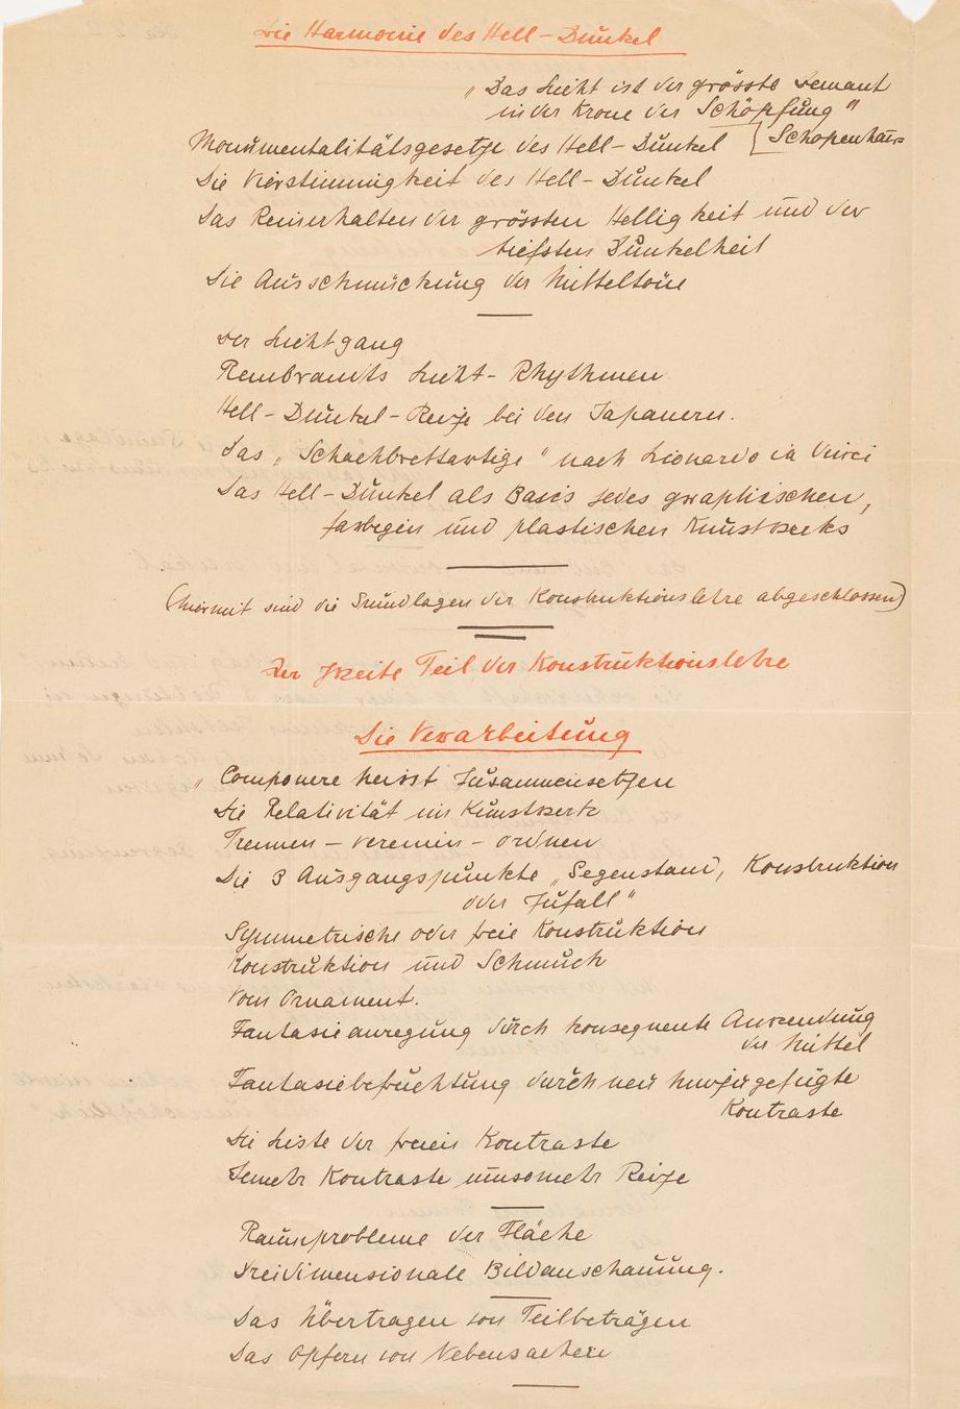 Die Harmonie des Hell-Dunkel
„Das Licht ist der grösste Demant
in der Krone der Schöpfung"
Monumentalitätsgesetze des Hell-Dunkel [Schopenhauer
Die Vierstimmigkeit des Hell-Dunkel
Das Reinerhalten der grössten Helligkeit und der
tiefsten Dunkelheit
Die Ausschmückung der Mitteltöne
Der Lichtgang
Rembrandts Licht-Rhythmen
Hell-Dunkel-Reize bei den Japanern.
Das „Schachbrettartige" nach Lionardo da Vinci
Das Hell-Dunkel als Basis jedes graphischen,
farbigen und plastischen Kunstwerks
(hiermit sind die Grundlagen der Konstruktionslehre abgeschlossen)
Der zweite Teil der Konstruktionslehre
Die Verarbeitung
„Componere heisst Zusammensetzen
Die Relativität im Kunstwerk
Trennen - vereinen - ordnen
Die 3 Ausgangspunkte „Gegenstand, Konstruktion
oder Zufall"
Symmetrische oder freie Konstruktion
Konstruktion und Schmuck
Vom Ornament.
Fantasieanregung durch konsequente Anwendung
der Mittel
Fantasiebefruchtung durch neu hinzugefügte
Kontraste
Die Liste der freien Kontraste
Jemehr Kontraste umsomehr Reize
Raumprobleme der Fläche
Dreidimensionale Bildanschauung.
Das Übertragen von Teilbeträgen
Das Opfern von Nebensachen